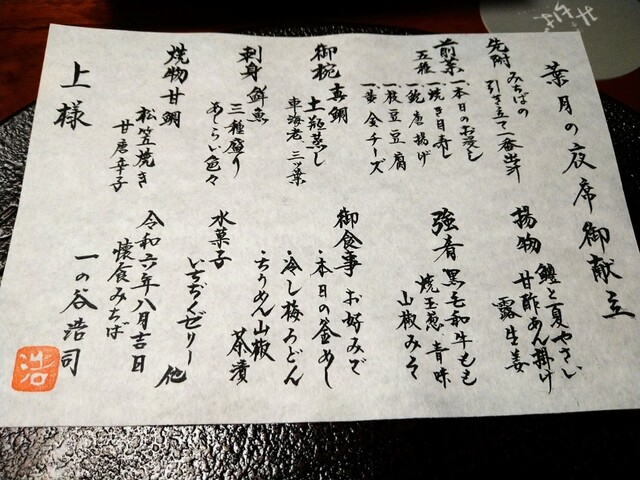 葉月の夜席御献立
先附 みちばの
引き立て一番出汁
前菜 一、本日のお浸し
五種 一、焼き目寿し
一、鮑唐揚げ
一、枝豆豆腐
一、黄金チーズ
御椀 真鯛
土瓶蒸し
車海老 三つ葉
刺身 鮮魚
三種盛り
あしらい色々
焼物 甘鯛
松笠焼き
甘唐辛子
上様
揚物 鱧と夏やさい
甘酢あん掛け
露生姜
強肴 黒毛和牛もも
焼玉葱 青味
山椒みそ
御食事 お好みで
・本日の釜めし
・冷し梅うどん
・ちりめん山椒
茶漬
水菓子
いちぢくゼリー 他
令和六年八月吉日
懐食みちば
一の谷浩司
浩